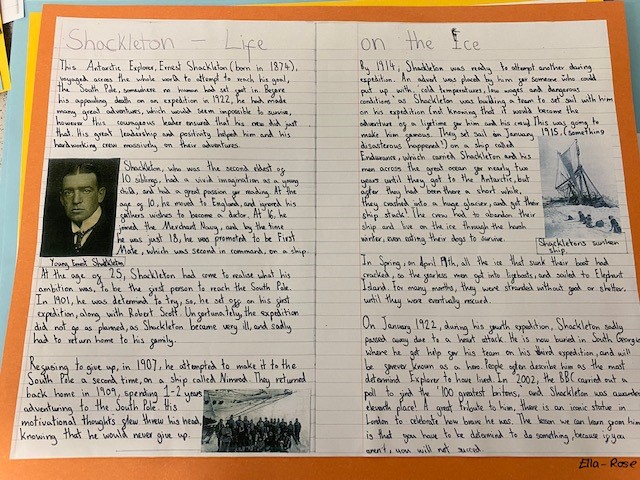 Shackleton Life
This Antarctic Explorer, Ernest Shackleton (born in 1874),
voyaged across the whole world to attempt to reach his goal,
the South Pole, somewhere no human had set foot in. Before
his appauling death on an expedition in 1922, he had made
many great adventures, which would seem impossible to survive,
however this couragous leader ensured that his crew did just
that. His great leadership and positivity helped him and his
hardworking crew massively, on their adventures.
Shackleton, who was the second eldest of
10 siblings, had a vivid imagination as a young
child, and had a great passion for reading. At the
age of 10, he moved to England, and ignored his
fathers wishes to become a doctor. At 16, he
joined the Merchant Navy, and by the time
he was just 18, he was promoted to be First
Mate, which was second in command, on a ship.
Young Ernest Shackleton
At the age of 25, Shackleton had come to realise what his
ambition was, to be the first person to reach the South Pole.
In 1901, he was determind to try, so, he set off on his first
expedition, along with Robert Scott. Unfortunately, the expedition
did not go as planned, as Shackleton became very ill, and sadly
had to return home to his family.
Refusing to give up, in 1907, he attempted to make it to the
South Pole a second time, on a ship called Nimrod. They returned
back home in 1909, spending 1-2 years
adventuring to the South Pole. His
motivational thoughts flew threw his head,
knowing that he would never give up.
on the Ice
By 1914, Shackleton was ready to attempt another daring
expedition. An advert was placed by him for someone who could
put up with, cold temperatures, low wages and dangerous
conditions as Shackleton was building a team to set sail with him
on his expedition. Not knowing that it would become the
adventure of a lifetime for him and his crew! This was going to
make him famous. They set sail on January 1915, (something
disasterous happened!) on a ship called
Endurance, which carried Shackleton and his
men across the great ocean for nearly two
years until they got to the Antarctic, but
after they had been there a short while,
they crashed into a huge glacier, and got their
ship stuck! The crew had to abandon their
ship and live on the ice through the harsh
winter, even eating their dogs to survive.
Shackletons sunken
ship.
In Spring, on April 9th, all the ice that sunk their boat had
cracked, so the fearless men got into lifeboats, and sailed to Elephant
Island. For many months, they were stranded without food or shelter,
until they were eventually rescued.
On January 1922, during his fourth expedition, Shackleton sadly
passed away due to a heart attack. He is now buried in South Georgia
where he got help for his team on his third expedition, and will
be forever known as a hero. People often describe him as the most
determind Explorer to have lived. In 2002, the BBC carried out a
poll to find the '100 greatest britons, and Shackleton was awarded
eleventh place! A great tribute to him, there is an iconic statue in
London to celebrate how brave he was. The lesson we can learn from him
is that you have to be determind to do something, because if you
aren't, you will not succeed.
Ella-Rose